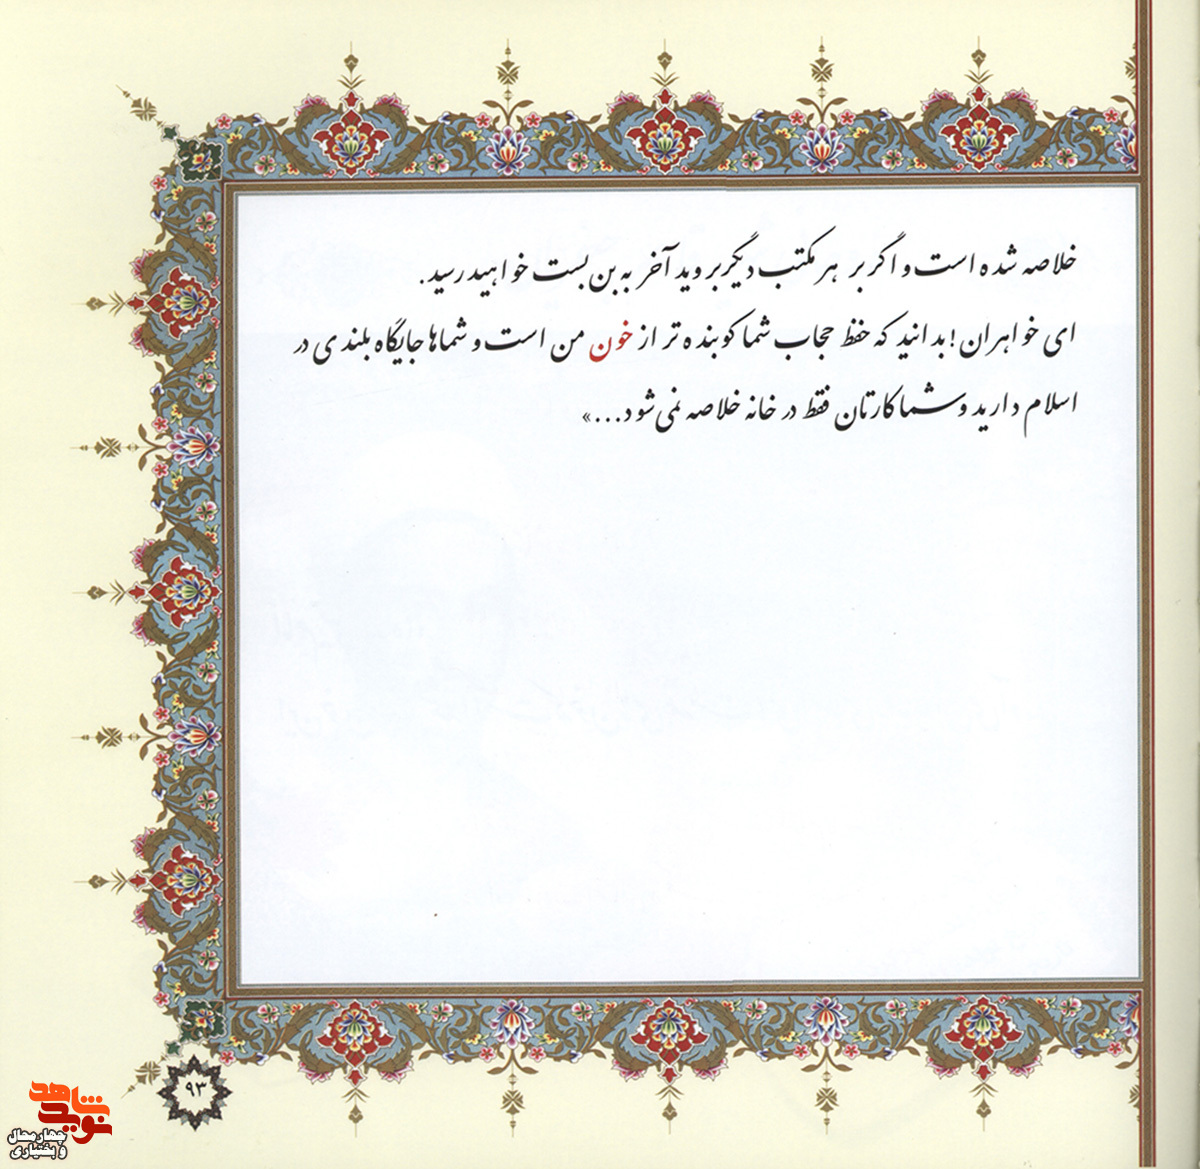 خلاصه شده است و اگر بر هر مکتب دیگر بروید آخر به بن بست خواهید رسید.
ای خواهران! بدانید که حفظ حجاب شما کوبنده تر از خون من است و شماها جایگاه بلندی در
اسلام دارید و شما کارتان فقط در خانه خلاصه نمی شود...»
۹۳
نوید شاهد
چهارمحال
و بختیاری